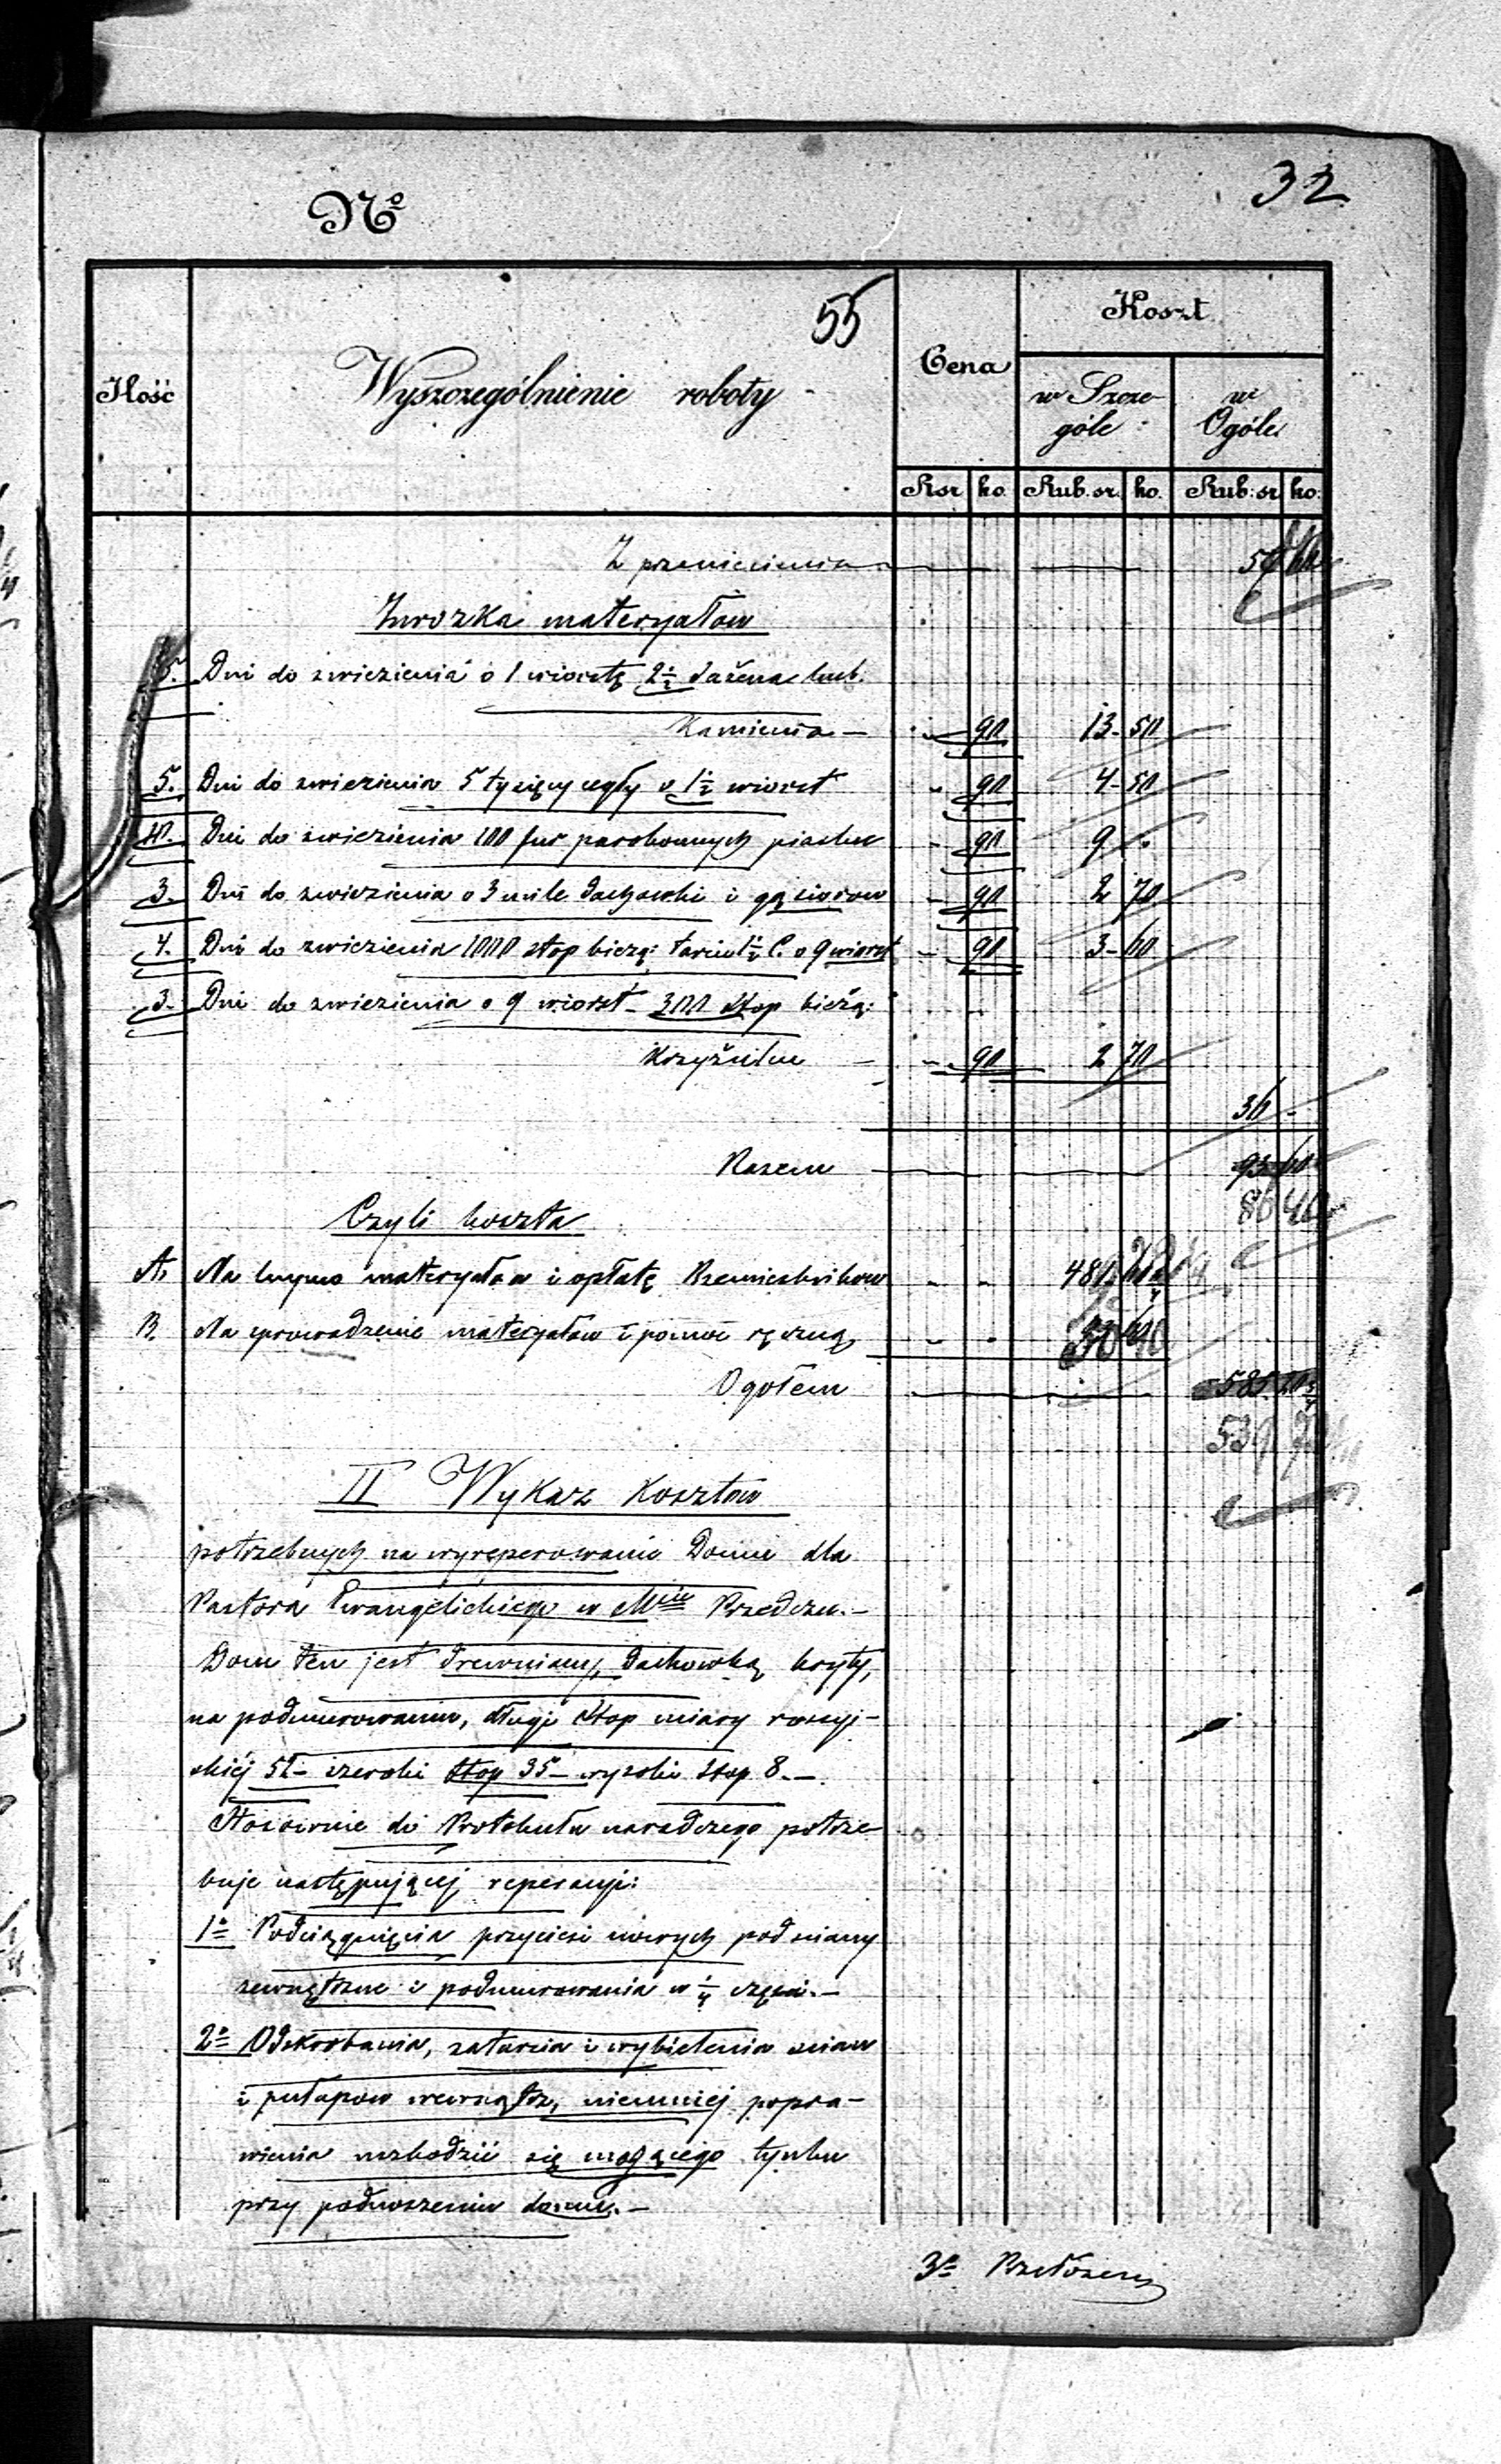 32
№
55
Ilość
Wyszczególnienie roboty
Cena
Koszt
w Szczególe
w Ogóle
Rsr ko. Rub. sr. ko. Rub: sr ko:
Z przeniesienia
Zwozka materyałów
Dni do zwiezienia o 1 wiorstę 2 1/2 sażena kub.
Kamienia — - 90 13 - 50
5. Dni do zwiezienia 5 tysięcy cegły o 1 1/2 wiorst - 90 4 - 50
10. Dni do zwiezienia 100 fur parokonnych piasku - 90 9 -
3. Dni do zwiezienia o 3 mile dachowki i gąsiorow - 90 2 70
4. Dni do zwiezienia 1000 stop bieżą: tarcic 1 1/2 C. o 9 wiorst - 90 3 - 60
3. Dni do zwiezienia o 9 wiorst - 300 stop bieżą:
Krzyżulcu — - 90 2 70
36 -
Razem 93 60
86 40
Czyli koszta
A. Na kupno materyałow i opłatę Rzemieslnikow - -
B. Na sprowadzenie materyałow i pomoc ręczną - -
Ogołem
539
II Wykaz Kosztow
potrzebnych na wyreperowanie Domu dla
Pastora Ewangelickiego w Mcie Przedczu. —
Dom ten jest drewniany, dachowką kryty,
na podmurowaniu, długi stop miary rossyj-
skiej 52 - szeroki stop 35 - wysoki stop 8. —
Stosownie do Protokułu naradczego potrze-
buje następującej reperacyi:
1o Podciągnięcia przyciesi nowych pod sciany
zewnętrzne i podmurowania w 1/4 części. —
2o Oskrobania, zatarcia i wybielenia scian
i pułapow wewnątrz, niemniej popra-
wienia uszkodzić się mogącego tynku
przy podnoszeniu domu. —
3o Przełożenia